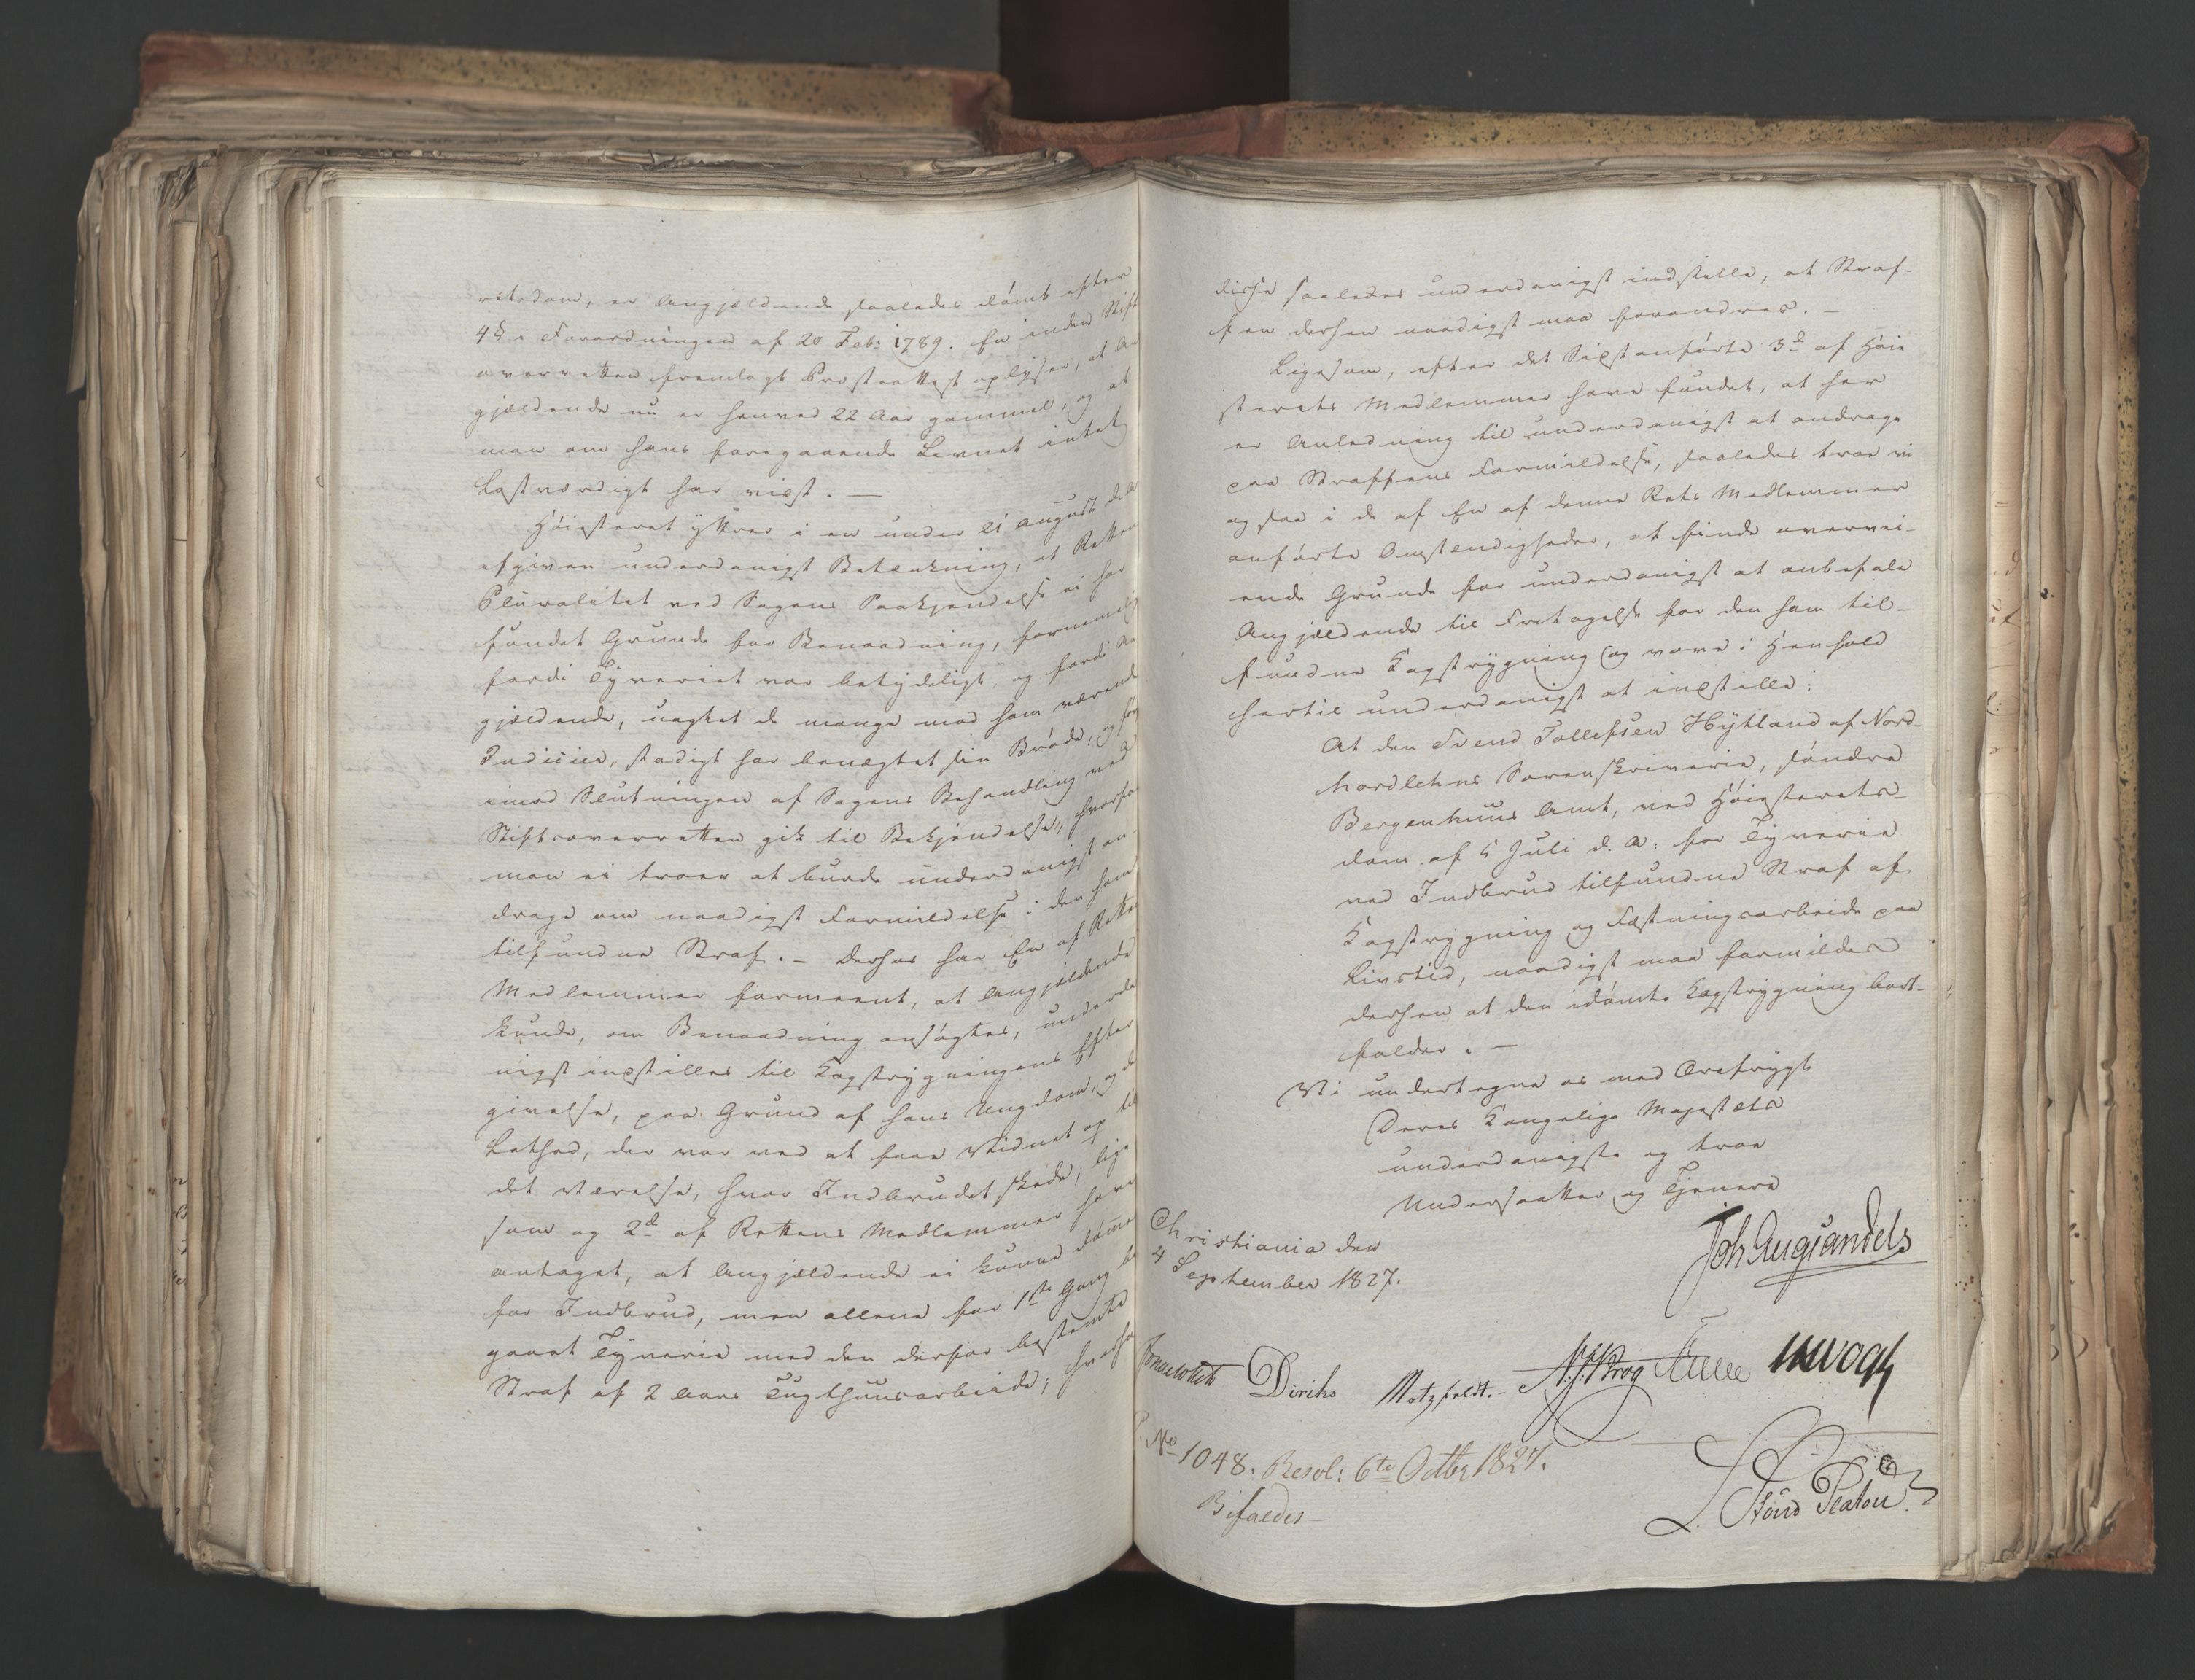 retsdom, er Angjældende saaledes dømt efter
4§ i Forordningen af 20 Feb: 1789. En inden Stift
overretten fremlagt Præsteattest oplyser, at An
gjældende nu er henved 22 Aar gammel, og at
man om hans foregaaende Levnet intet
Lastværdigt har vidst. —
Høiesteret yttrer i en under 21 August d. A
afgiven underdanigst Betænkning, at Retten
Pluralitet ved Sagens Paakjendelse ei har
fundet Grunde for Benaadning, fornemelig
fordi Tyveriet var betydeligt, og fordi An
gjældende, uagtet de mange mod ham værende
Indicier, stadigt har benægtet sin Brøde, og før
imod Slutningen af Sagens Behandling ved
Stiftsoverretten gik til Bekjendelse, hvorfor
man ei troer at burde underdanigst an-
drage om naadigst Formildelse i den ham
tilfundne Straf. — Derhos har En af Rettens
Medlemmer formeent, at Angjældende
kunde, om Benaadning ansøgtes, underda
nigst indstilles til Kagstrygningens Efter
givelse, paa Grund af hans Ungdom, og de
Lethed, der var ved at faae Vidnet op til
det Værelse, hvor Indbrudet skede; lige
som og 2de af Rettens Medlemmer have
antaget, at Angjældende ei kunde dømmes
for Indbrud, men allene for 1ste Gang be
gaaet Tyverie med den derfor bestemte
Straf af 2 Aars Tugthuusarbeide; hvorfor
disse saaledes underdanigst indstille, at Straf-
fen derhen naadigst maa forandres. —
Ligesom, efter det Sidstanførte 3de af Høie
sterets Medlemmer have fundet, at her
er Anledning til underdanigst at andrage
paa Straffens Formildelse, saaledes troe vi
ogsaa i de af En af denne Rets Medlemmer
anførte Omstændigheder, at finde overvei-
ende Grunde for underdanigst at anbefale
Angjældende til Fritagelse for den ham til-
fundne Kagstrygning og vove i Henhold
hertil underdanigst at indstille:
At den Svend Tollefsen Hytland af Nord-
hordlehns Sorenskriverie, søndre
Bergenhuus Amt, ved Høiesterets-
dom af 5 Juli d. A: for Tyverie
ved Indbrud tilfundne Straf af
Kagstrygning og Fæstningsarbeide paa
Livstid, naadigst maa formildes
derhen at den idømte Kagstrygning bort-
falder. —
Vi undertegne os med Ærefrygt
Deres Kongelige Majestæts
underdanigste og troe
Undersaatter og Tjenere
Joh Aug Sandels
Christiania den
4 September 1827.
Diriks Motzfeldt. Krog Vogt
No 1048. Resol: 6te Octbr 1827.
Bifaldes —
L. Stoud Platou